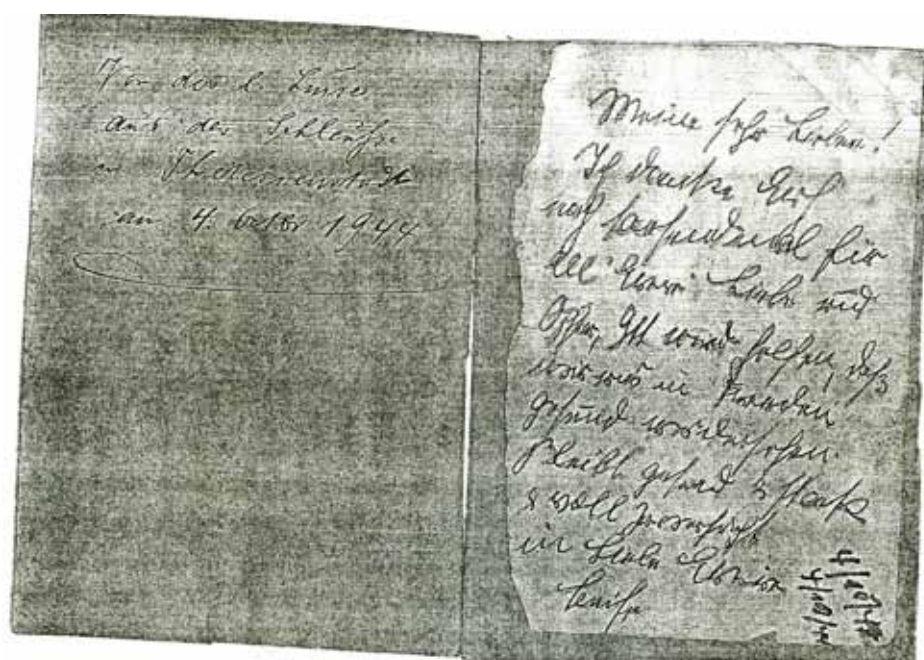 Von der l. Luise
aus der Schleuse
in Theresienstadt
am 4. Oktbr 1944
Meine sehr Lieben!
Ich danke Euch
noch tausendmal für
all' Euere Liebe und
Opfer, Gtt wird helfen, daß
wir uns in Freuden
gesund wiedersehen.
Bleibt gesund & stark
& voll Zuversicht
in Liebe Euere
Luise
4/10/44